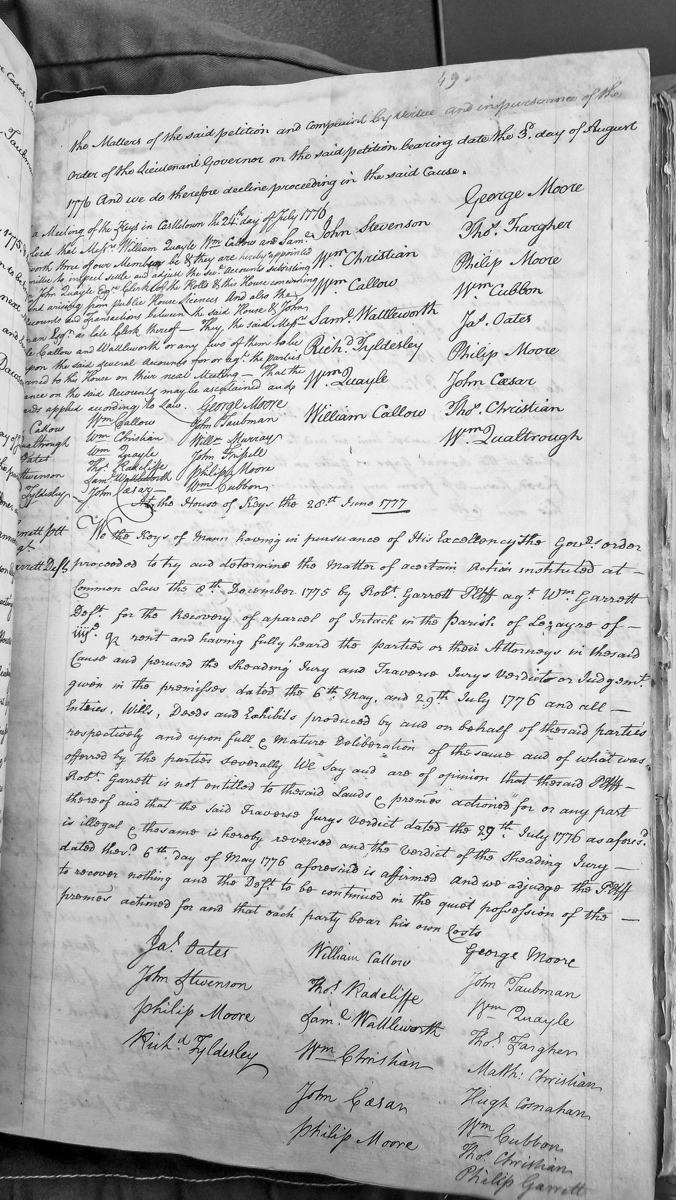 49
the Matters of the said petition and Complaint by virtue and in pursuance of the
Order of the Lieutenant Governor on the said petition bearing date the 3d. day of August
1776 And we do therefore decline proceeding in the said Cause.
George Moore
Thos. Fargher
Philip Moore
Wm Cubbon
Jas. Oates
Philip Moore
John Cæsar
Thos. Christian
Wm Qualtrough
John Stevenson
Wm Christian
Wm Callow
Saml. Wattleworth
Richd. Tyldesley
Wm Quayle
William Callow
a Meeting of the Keys in Castletown the 24th day of July 1776
that Messrs. William Quayle Wm Callow and Sam.
worth three of our Members be & they are hereby appointed
to inspect settle and adjust the Sev. Accounts subsisting
John Quayle Esqr. Clerk of the Rolls & this House concerning
and arising from Public House Licences And also the
Accounts and Transactions between the said House & John
Esqr. as late Clerk thereof — They, the said Messrs
Callow and Wattleworth or any two of them to be
upon the said several Accounts for or agt. the parties
to this House on their next Meeting — That the
ance on the said Accounts may be ascertained and
applied according to Law.
George Moore
John Taubman
Willm. Murray
John Frissell
Philip Moore
Wm Cubbon
Wm Callow
Wm Christian
Wm Quayle
Thos. Radcliffe
Saml. Wattleworth
John Cæsar
Callow
Oates
Tyldesley
At the House of Keys the 28th. June 1777
We the Keys of Mann having in pursuance of His Excellency the Govrs. order
proceeded to try and determine the Matter of a certain Action instituted at —
Common Law the 8th. December 1775 by Robt. Garrett Pltff agt. Wm Garrett
Deft. for the Recovery of a parcel of Intack in the Parish of Lezayre of —
iiijd. q rent and having fully heard the parties or their Attorneys in the said
Cause and perused the Sheading Jury and Traverse Jurys Verdicts or Judgemt.
given in the premises dated the 6th. May, and 29th July 1776 and all —
Entries, Wills, Deeds and Exhibits produced by and on behalf of the said parties
respectively and upon full & Mature Deliberation of the same and of what was
offered by the parties Severally We say and are of opinion that the said Pltff —
Robt. Garrett is not entitled to the said Lands & premes actioned for or any part
thereof and that the said Traverse Jurys Verdict dated the 29th July 1776 as aforesd.
is illegal & the same is hereby reversed and the Verdict of the Sheading Jury —
dated the sd. 6th. day of May 1776 aforesaid is affirmed and we adjudge the Pltff
to recover nothing and the Deft. to be continued in the quiet possession of the —
premes actioned for and that each party bear his own Costs
Jas. Oates
John Stevenson
Philip Moore
Richd Tyldesley
William Callow
Thos. Radcliffe
Saml Wattleworth
Wm Christian
John Cæsar
Philip Moore
George Moore
John Taubman
Wm Quayle
Thos. Fargher
Matth: Christian
Hugh Cosnahan
Wm Cubbon
Thos. Christian
Philip Garrett